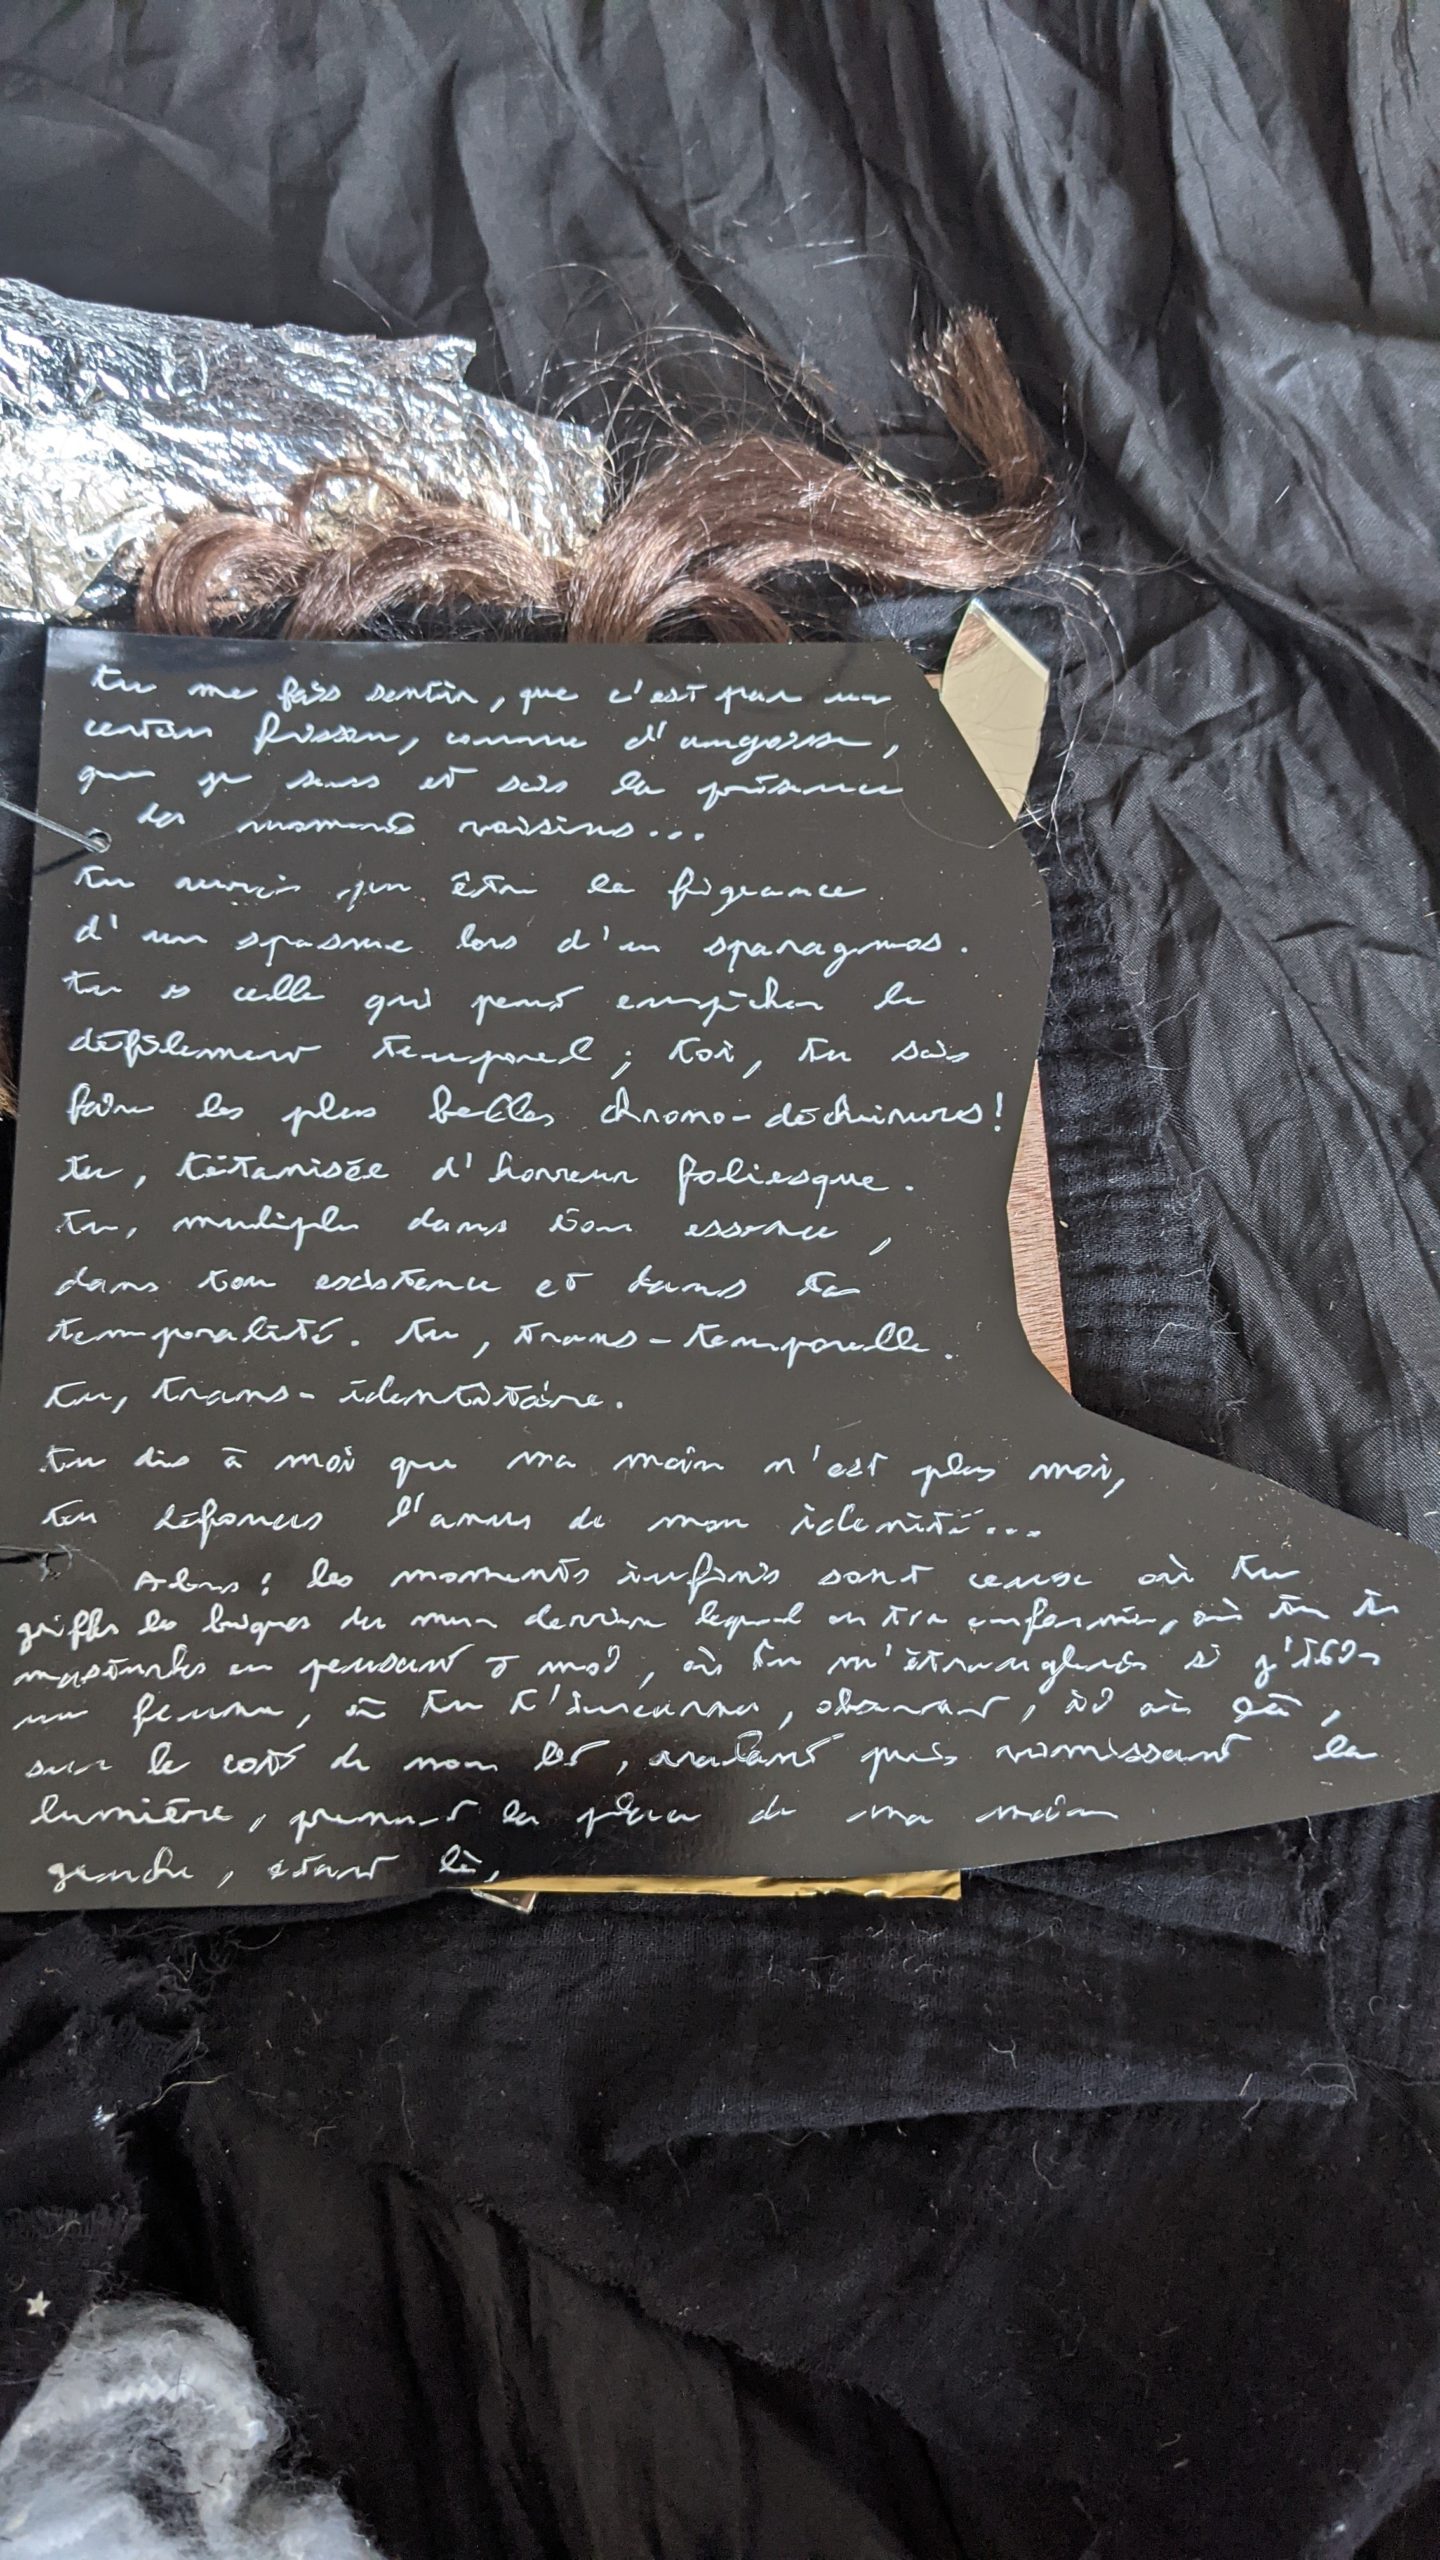 tu me fais sentir, que c'est par un
certain frisson, comme d'angoisse,
que je sens et sais la présence
des moments voisins...
tu aurais pu être la figeance
d'un spasme lors d'un sparagmos.
tu es celle qui peut empêcher le
défilement temporel ; toi, tu sais
faire les plus belles chrono-déchirures!
tu, tétanisée d'horreur foliesque.
tu, multiple dans ton essence,
dans ton existence et dans ta
temporalité. tu, trans-temporelle.
tu, trans-identitaire.
tu dis à moi que ma main n'est plus moi,
tu défonces l'anus de mon identité...
Alors : les moments infinis sont ceux où tu
griffes les briques du mur derrière lequel on t'a enfermée, où tu te
masturbes en pensant à moi, où tu m'étranglerais si j'étais
une femme, où tu t'incarnes, observant, ici où là,
sur le coté de mon lit, avalant puis vomissant la
lumière, prenant la place de ma main
gauche, étant là,